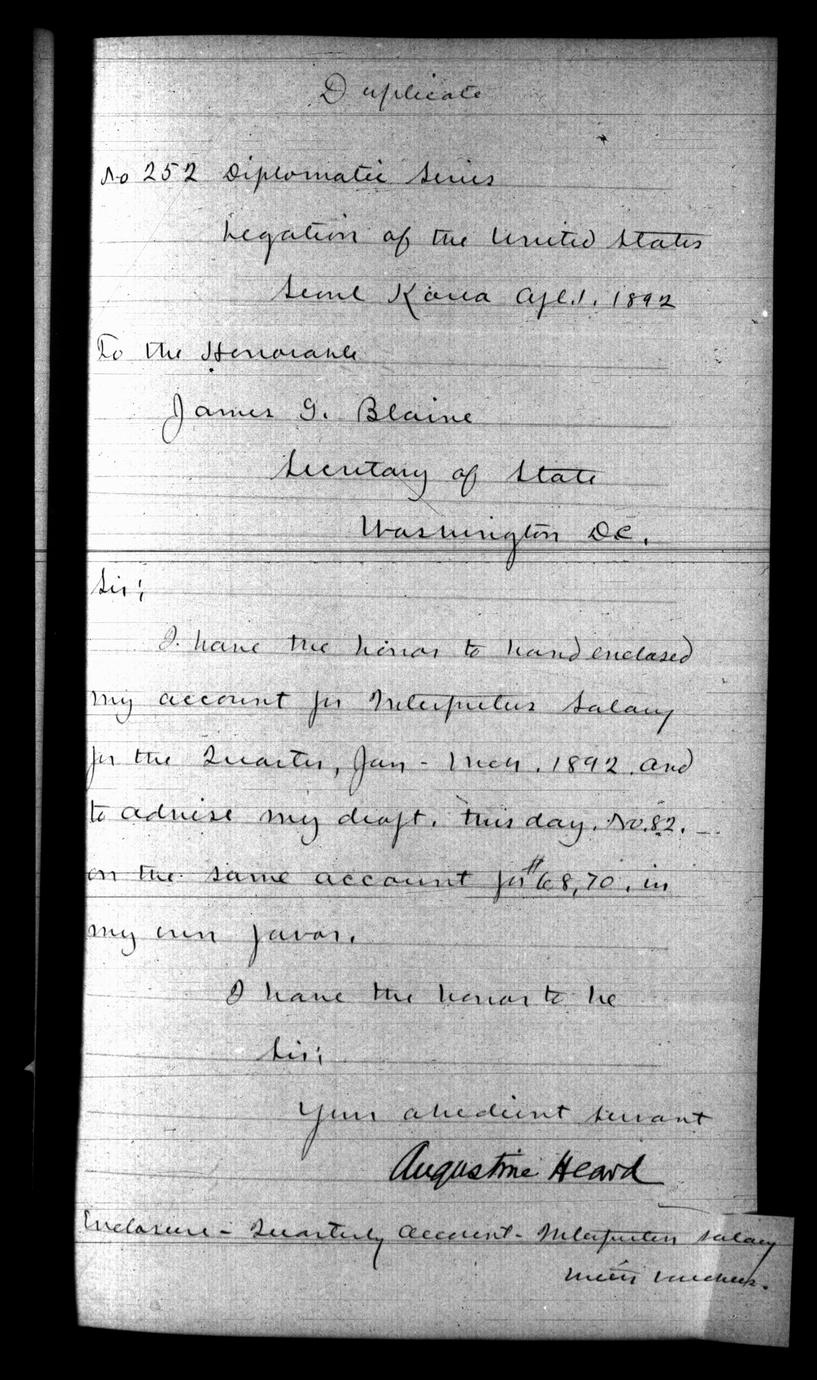 Duplicate
No 252 Diplomatic Series
Legation of the United States
Seoul Korea Apl. 1. 1892
To the Honorable
James G. Blaine
Secretary of State
Washington D.C.
Sir;
I have the honor to hand enclosed
my account for Interpreters Salary
for the Quarter, Jan - Mch. 1892. and
to advise my draft. this day. No. 82. -
on the same account for $68,70. in
my own favor.
I have the honor to be
Sir;
Your obedient servant
Augustine Heard
Enclosure - Quarterly Account - Interpreters Salary
with vouchers.